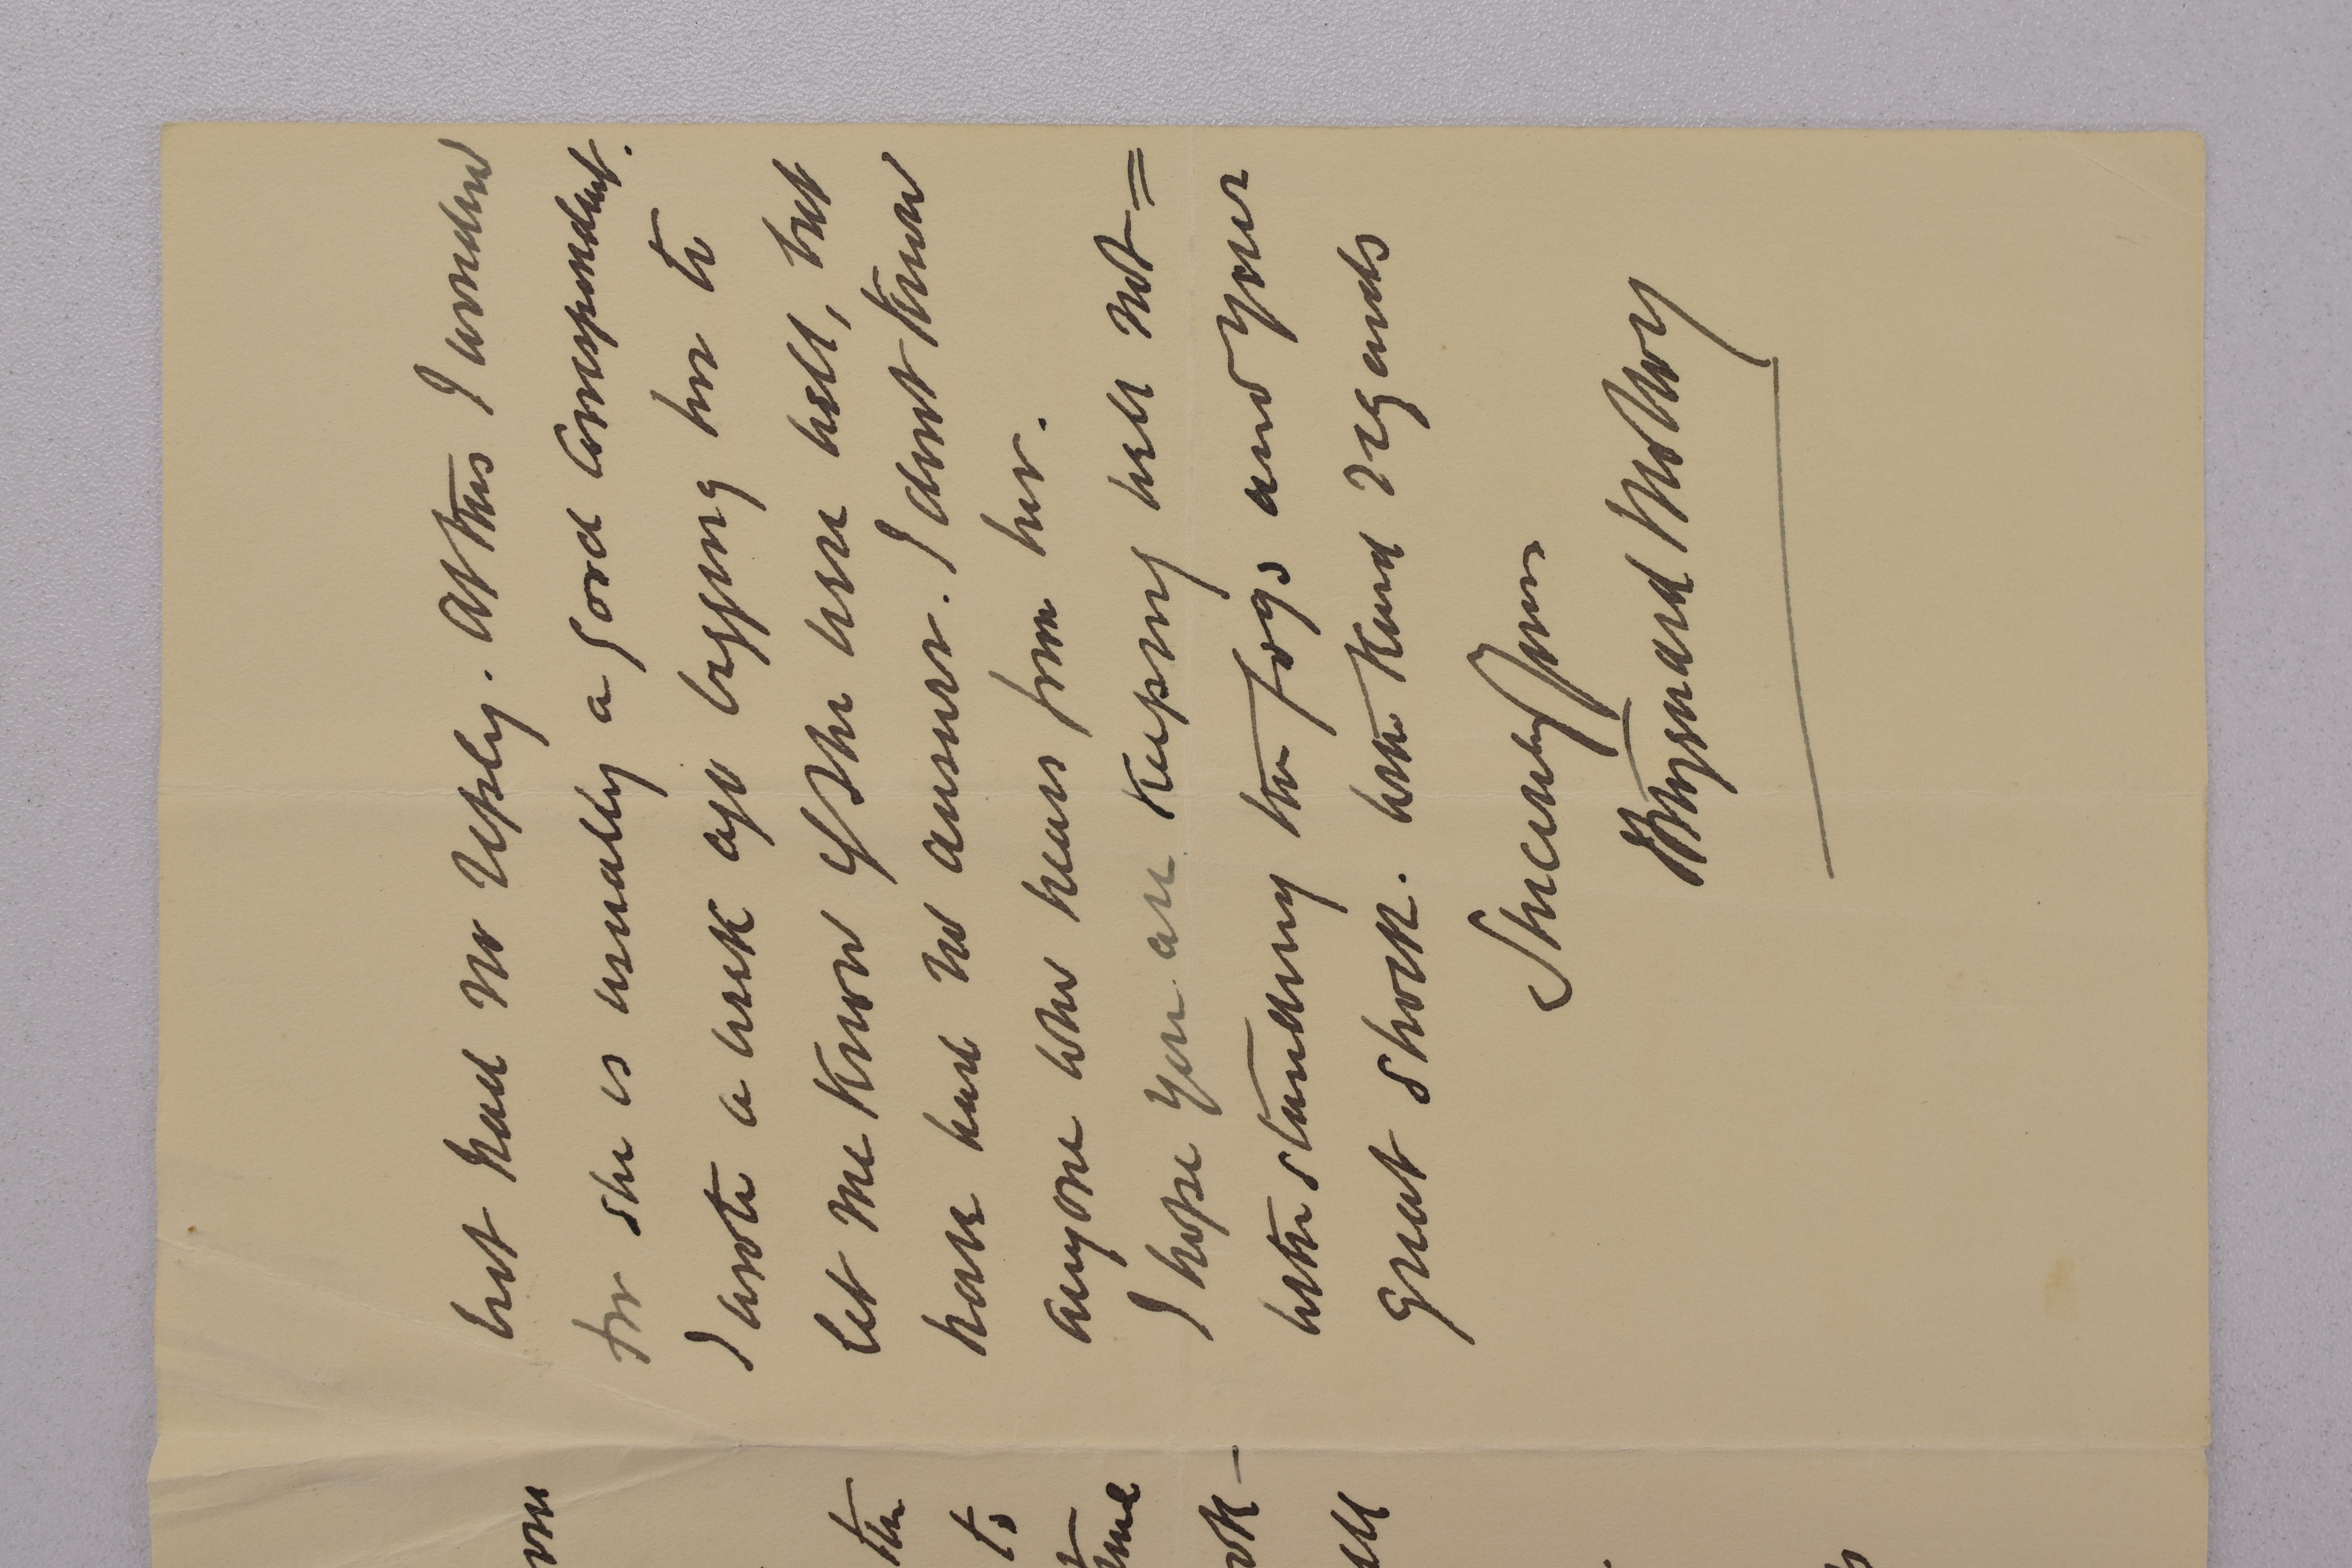 but had no reply. At this I wonder
for she is usually a good correspondent.
I wrote a week ago begging her to
let me know if she were well, but
have had no answer. I dont know
anyone who hears from her.
I hope you are keeping well not=
withstanding the fogs and your
great shock. With kind regards
Sincerely Yours
Maynard
om
the
to
time
ok-
ell